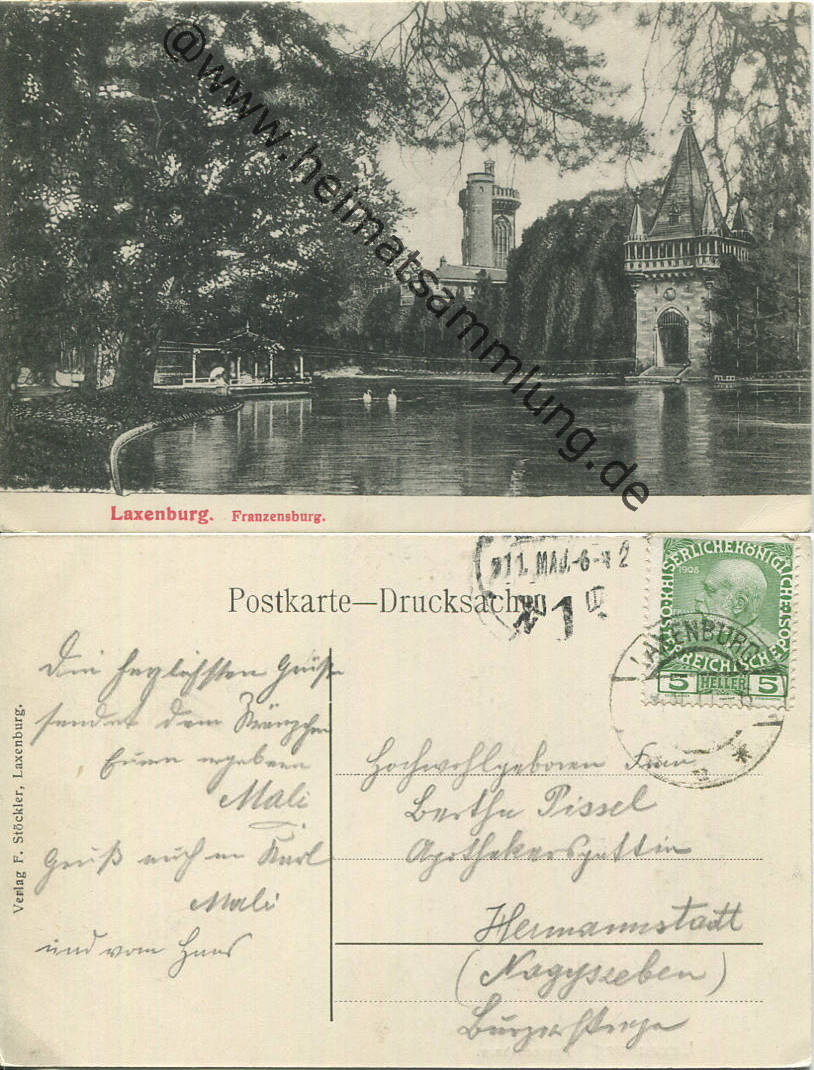 @www.heimatsammlung.de
Laxenburg. Franzensburg.
Postkarte—Drucksachen
11. MAJ.-6-
1
1908
KAISERLICHE KÖNIGLICHE
ÖSTERREICHISCHE POST
5 HELLER 5
LAXENBURG
Verlag F. Stöckler, Laxenburg.
Die herzlichsten Grüße
sendet dem Kränzchen
Euere ergebene
Mali
Gruß auch an Karl
Mali
und vom Hans
Hochwohlgeboren Frau
Bertha Pissel
Apothekersgattin
Hermannstadt
(Nagyszeben)